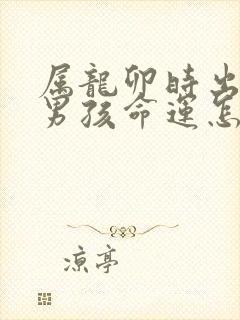 属龍卯時出
男孩命運怎
涼亭